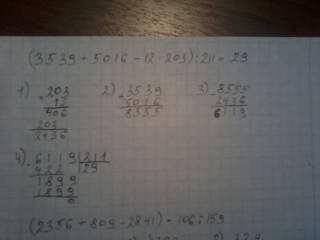 (3539 + 5016 - 12 · 203) : 211 = 29
1) 203 2) 3539 3) 8555
12 + 5016 - 2436
406 8555 6119
203
2436
4) - 6119 | 211
422 29
1899
1899
0
(2356 + 809 - 2841) + 106 : 159